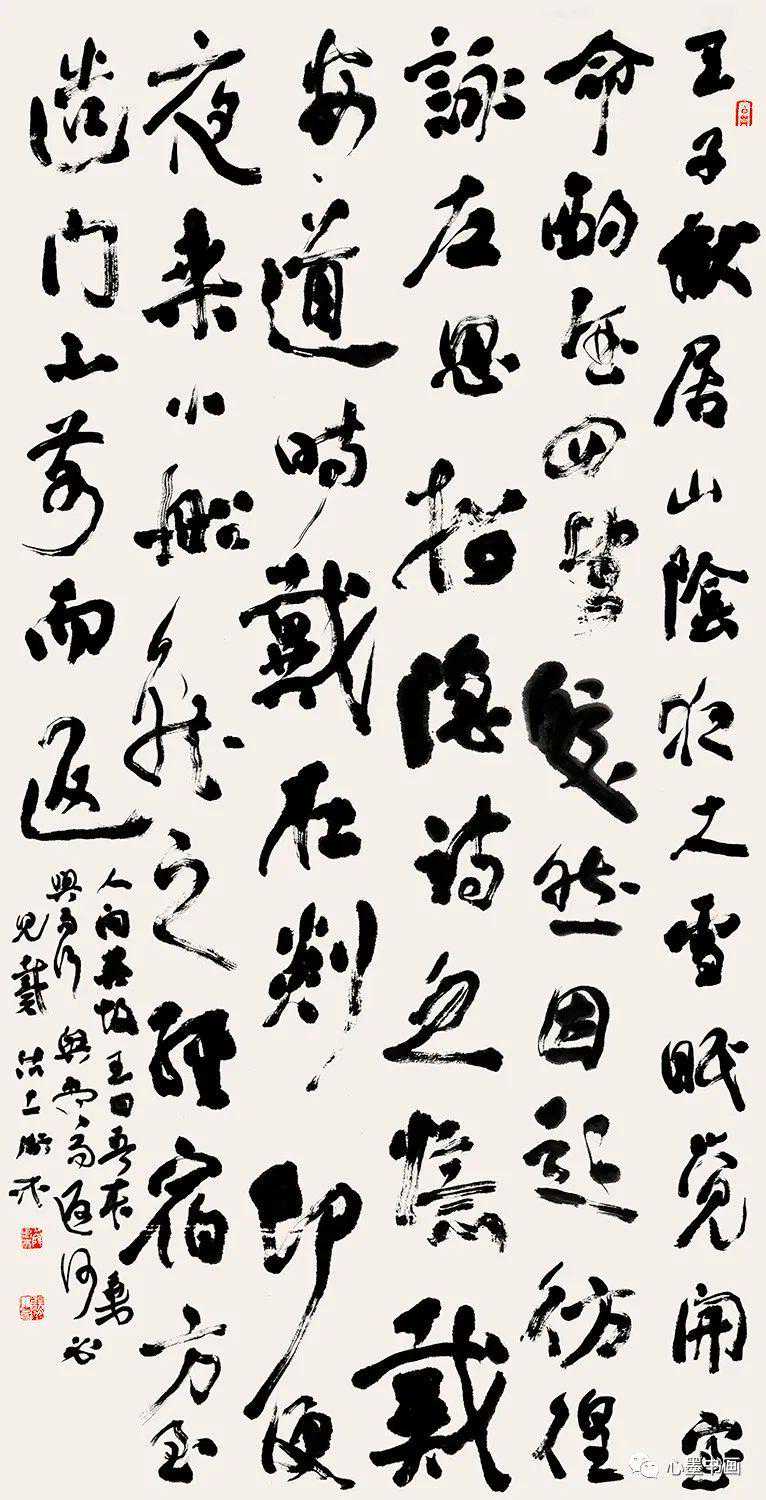 王子猷居山陰夜大雪眠觉開室
命酌酒四望皎然因起彷徨
詠左思招隐詩忽憶戴
安道時戴在剡即便
夜乘小船就之經宿方至
造门不前而返
人问其故王曰吾本乘
興而行興尽而返何必
見戴
心墨书画